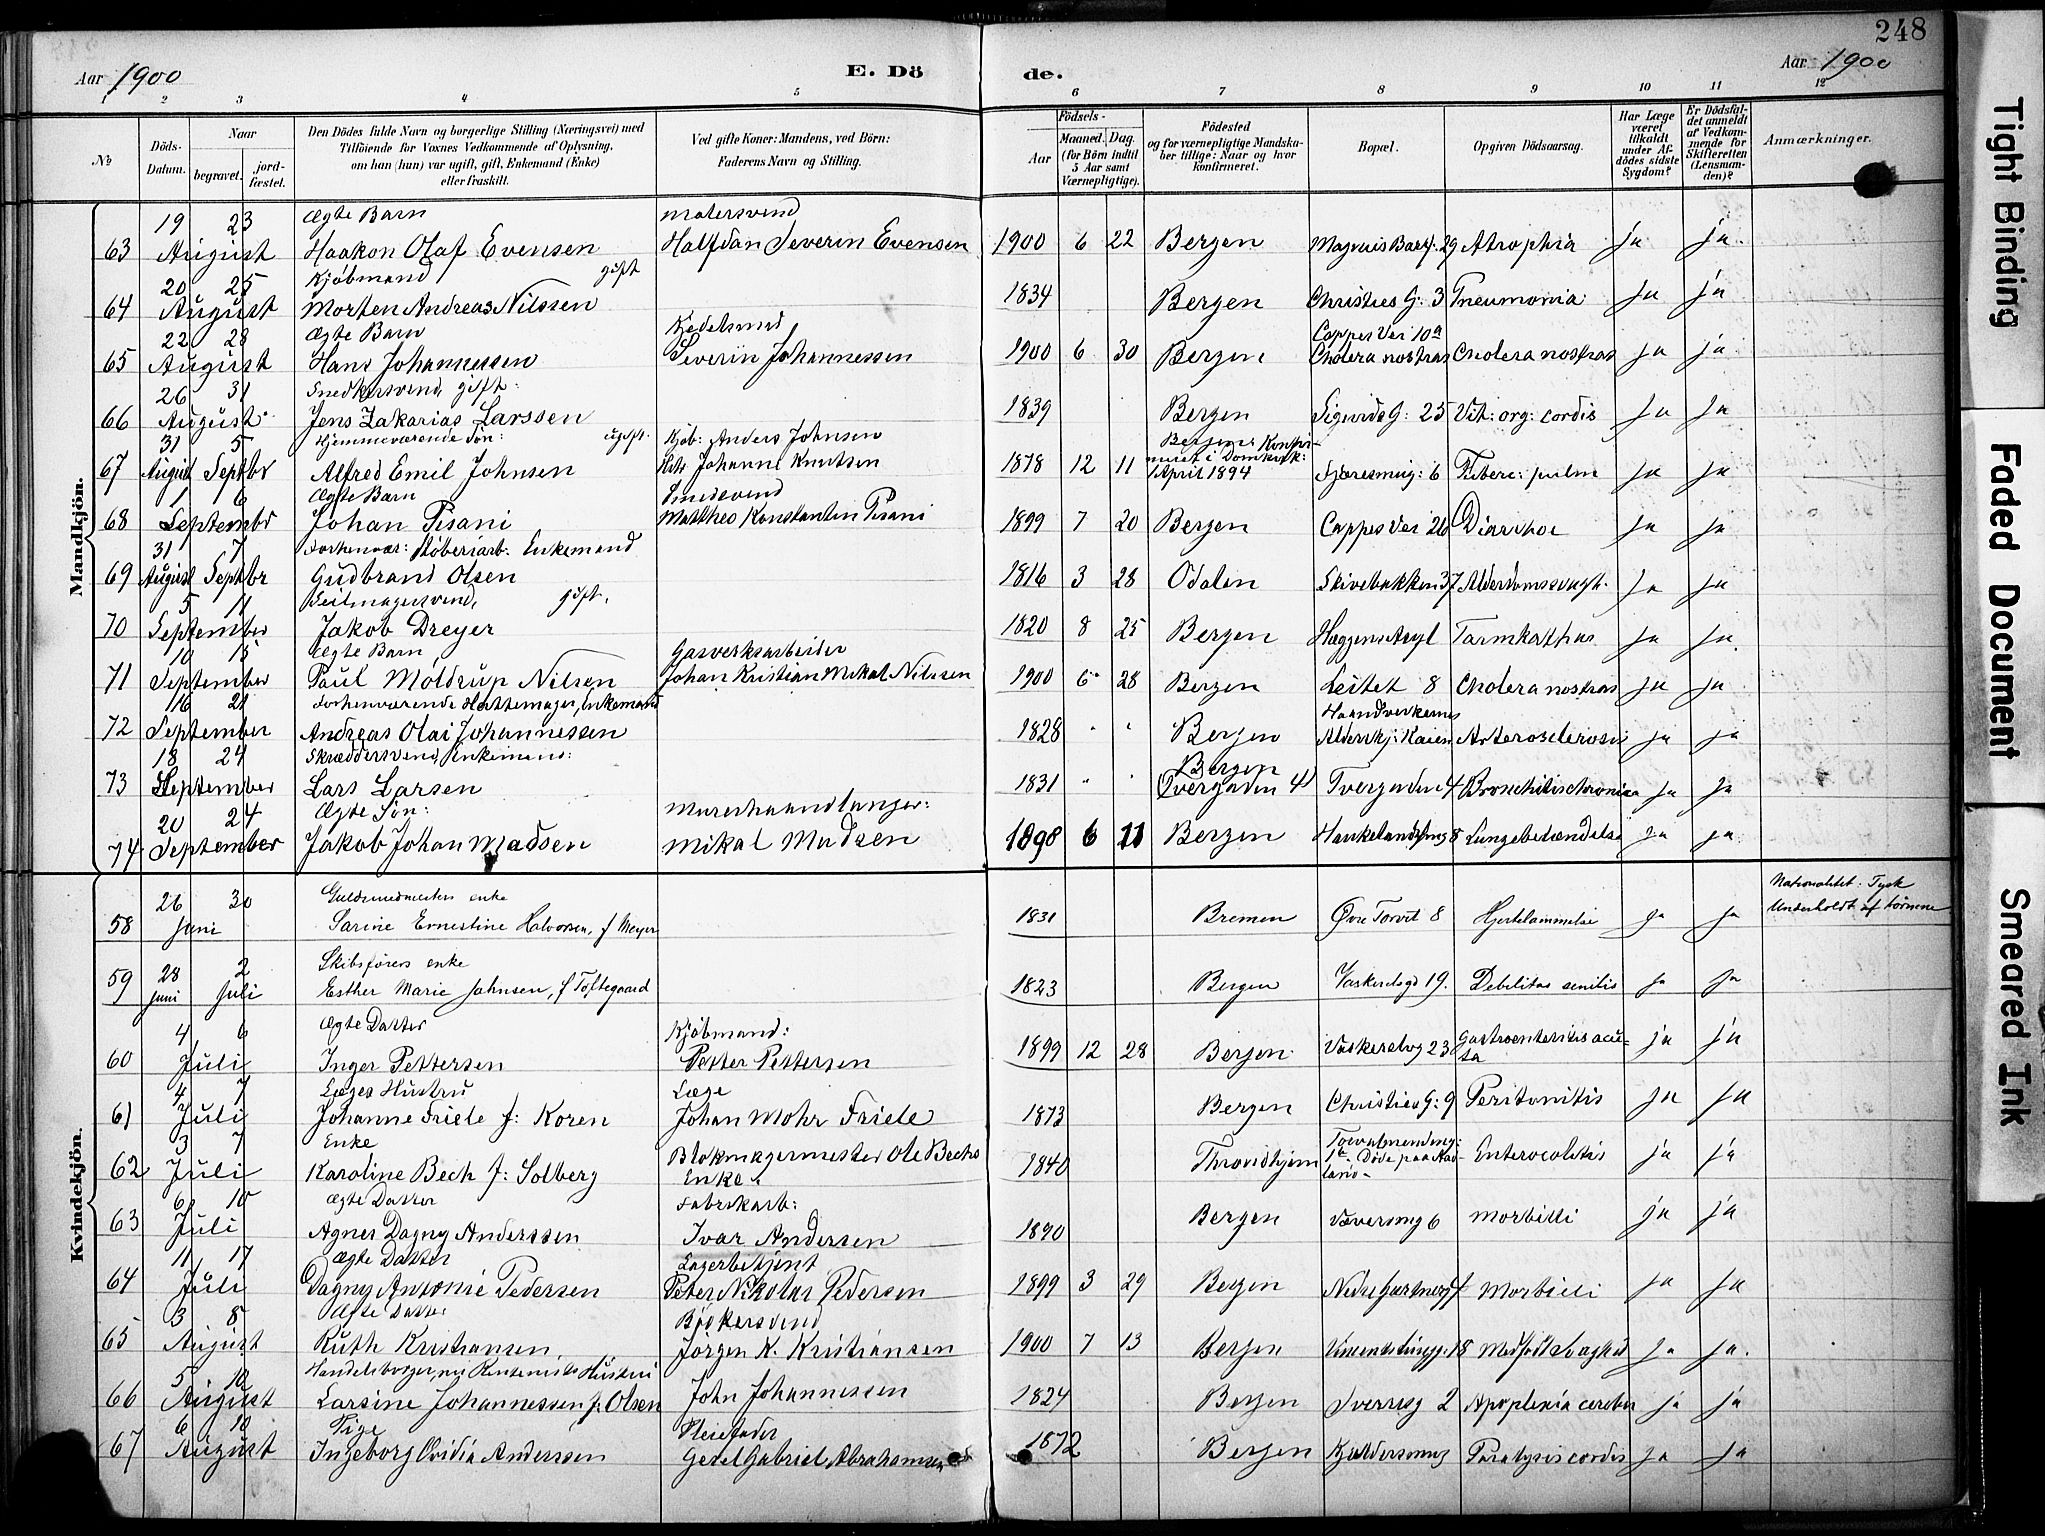 248
Aar 1900 E. Dö de. Aar 1900
1 2 3 4 5 6 7 8 9 10 11 12
No
Döds-Datum.
Naar begravet. jord-fæstet.
Den Dödes fulde Navn og borgerlige Stilling (Næringsvei) med Tilföiende for Voxnes Vedkommende af Oplysning, om han (hun) var ugift, gift, Enkemand (Enke) eller fraskilt.
Ved gifte Koner: Mandens, ved Börn: Faderens Navn og Stilling.
Födsels- Aar Maaned. Dag. (for Börn indtil 5 Aar samt Værnepligtige).
Födested og for værnepligtige Mandskaber tillige: Naar og hvor konfirmeret.
Bopæl.
Opgiven Dödsaarsag.
Har Læge været tilkaldt under Afdödes sidste Sygdom?
Er Dödsfaldet anmeldt af Vedkommende for Skifteretten (Lensmanden)?
Anmærkninger.
Mandkjön.
19 23 Ægte Barn Malersvend
63 August Haakon Olaf Evensen Halfdan Severin Evensen 1900 6 22 Bergen Magnus Barf. 29 Atrophia Ja Ja.
20 25 Kjøbmand gift
64 August Morten Andreas Nilssen 1834 Bergen Christies G: 3 Pneumonia Ja Ja
22 28 Ægte Barn Kjedelsmed Cappes Vei 10a
65 August Hans Johannessen Severin Johannessen 1900 6 30 Bergen Cholera nostras Cholera nostras Ja Ja
26 31 Snedkersvend, gift:
66 August Jens Zakarias Larssen 1839 Bergen Sigurds G: 25 Vit: org: cordis Ja Ja
31 5 Hjemmeværende Søn: ugift. Kjøb: Anders Johnsen Bergen: Konfir-
67 August Septbr Alfred Emil Johnsen Johanne Knutsen 1878 12 11 meret i Domkirk: April 1894 Fjæresmug: 6 Tuberc: pulm Ja Ja
1 6 Ægte Barn Smedsvend
68 September Johan Pisani Mattheo Konstantin Pisani 1899 7 20 Bergen Cappes Vei 26 Diarrhoe Ja Ja
31 7 Forhenvær: Støberiarb. Enkemand
69 August Septbr Gudbrand Olsen 1816 3 28 Odalen Skivebakken 37 Alderdomssvagh. Ja Ja
5 11 Seilmagersvend, gift.
70 September Jakob Dreyer 1820 8 25 Bergen Hæggens Asyl Tarmkathar Ja Ja.
10 15 Ægte Barn Gasverksarbeider
71 September Paul Moldrup Nilsen Johan Kristian Mikal Nilssen 1900 6 28 Bergen Leitet 8 Cholera nostras Ja Ja.
16 21 Forhenværende Hattemager, Enkemand Haandverkernes
72 September Andreas Olai Johannessen 1828 " " Bergen Alderhj: Kaien Arterosclerosis Ja Ja
18 24 Skræddersvend, Enkemand: Bergen
73 September Lars Larsen 1831 " " Tvergaden 4 Tvergaden 4 Bronchitis chronica Ja Ja
20 24 Ægte Søn: Murerhaandlanger:
74 September Jakob Johan Madsen Mikal Madsen 1898 6 11 Bergen Haukelandsmug 8 Lungebetændelse Ja Ja
Kvindekjön.
26 30 Guldsmedmesters enke Nationalitet. Tysk
58 Juni Sarine Ernestine Halvorsen, f Meyer 1831 Bremen Øvre Torvet 8 Hjertelammelse Ja Ja Underholdt af sønnene
28 2 Skibsførers enke
59 Juni Juli Esther Marie Jahnsen, f Toftegaard 1823 Bergen Vaskerelvgd 19. Debilitas senilis Ja Ja
4 6 Ægte Datter Kjøbmand:
60 Juli Inger Pettersen Petter Pettersen 1899 12 28 Bergen Vaskerelvg 23 Gastroenteritis acu=ta Ja Ja
4 7 Læges Hustru Læge
61 Juli Johanne Friele f: Koren Johan Mohr Friele 1873 Bergen Christies G: 9 Peritonitis Ja Ja
3 7 Enke Blokmagermester Ole Bechs Torvalmending:
62 Juli Karoline Bech f: Solberg Enke. 1840 Throndhjem Døde paa Aad-land- Enterocolitis Ja Ja
6 10 Ægte Datter Fabrikarb:
63 Juli Agnes Dagny Anderssen Ivar Andersen 1890 Bergen Væversmug 6 Morbilli Ja Ja
11 17 Ægte Datter Lagerbetjent
64 Juli Dagny Antonie Pedersen Peter Nikolai Pedersen 1899 3 29 Bergen Morbilli Ja Ja
3 8 Ægte Datter Bødkersvend
65 August Ruth Kristiansen Jørgen K. Kristiansen 1900 7 13 Bergen Medfødt Svaghed Ja Ja.
5 10 Handelsborger, nu Rentenists Hustru
66 August Larsine Johannessen f: Olsen John Johannessen 1824 Bergen Sverresg 2 Apoplexia cerebri Ja Ja
6 10 Pige Pleiefader
67 August Ingeborg Ovidia Anderssen Gerel Gabriel Abrahamsen 1872 Bergen Kjeldersmug Paralysis cordis Ja Ja
Tight Binding
Faded Document
Smeared Ink